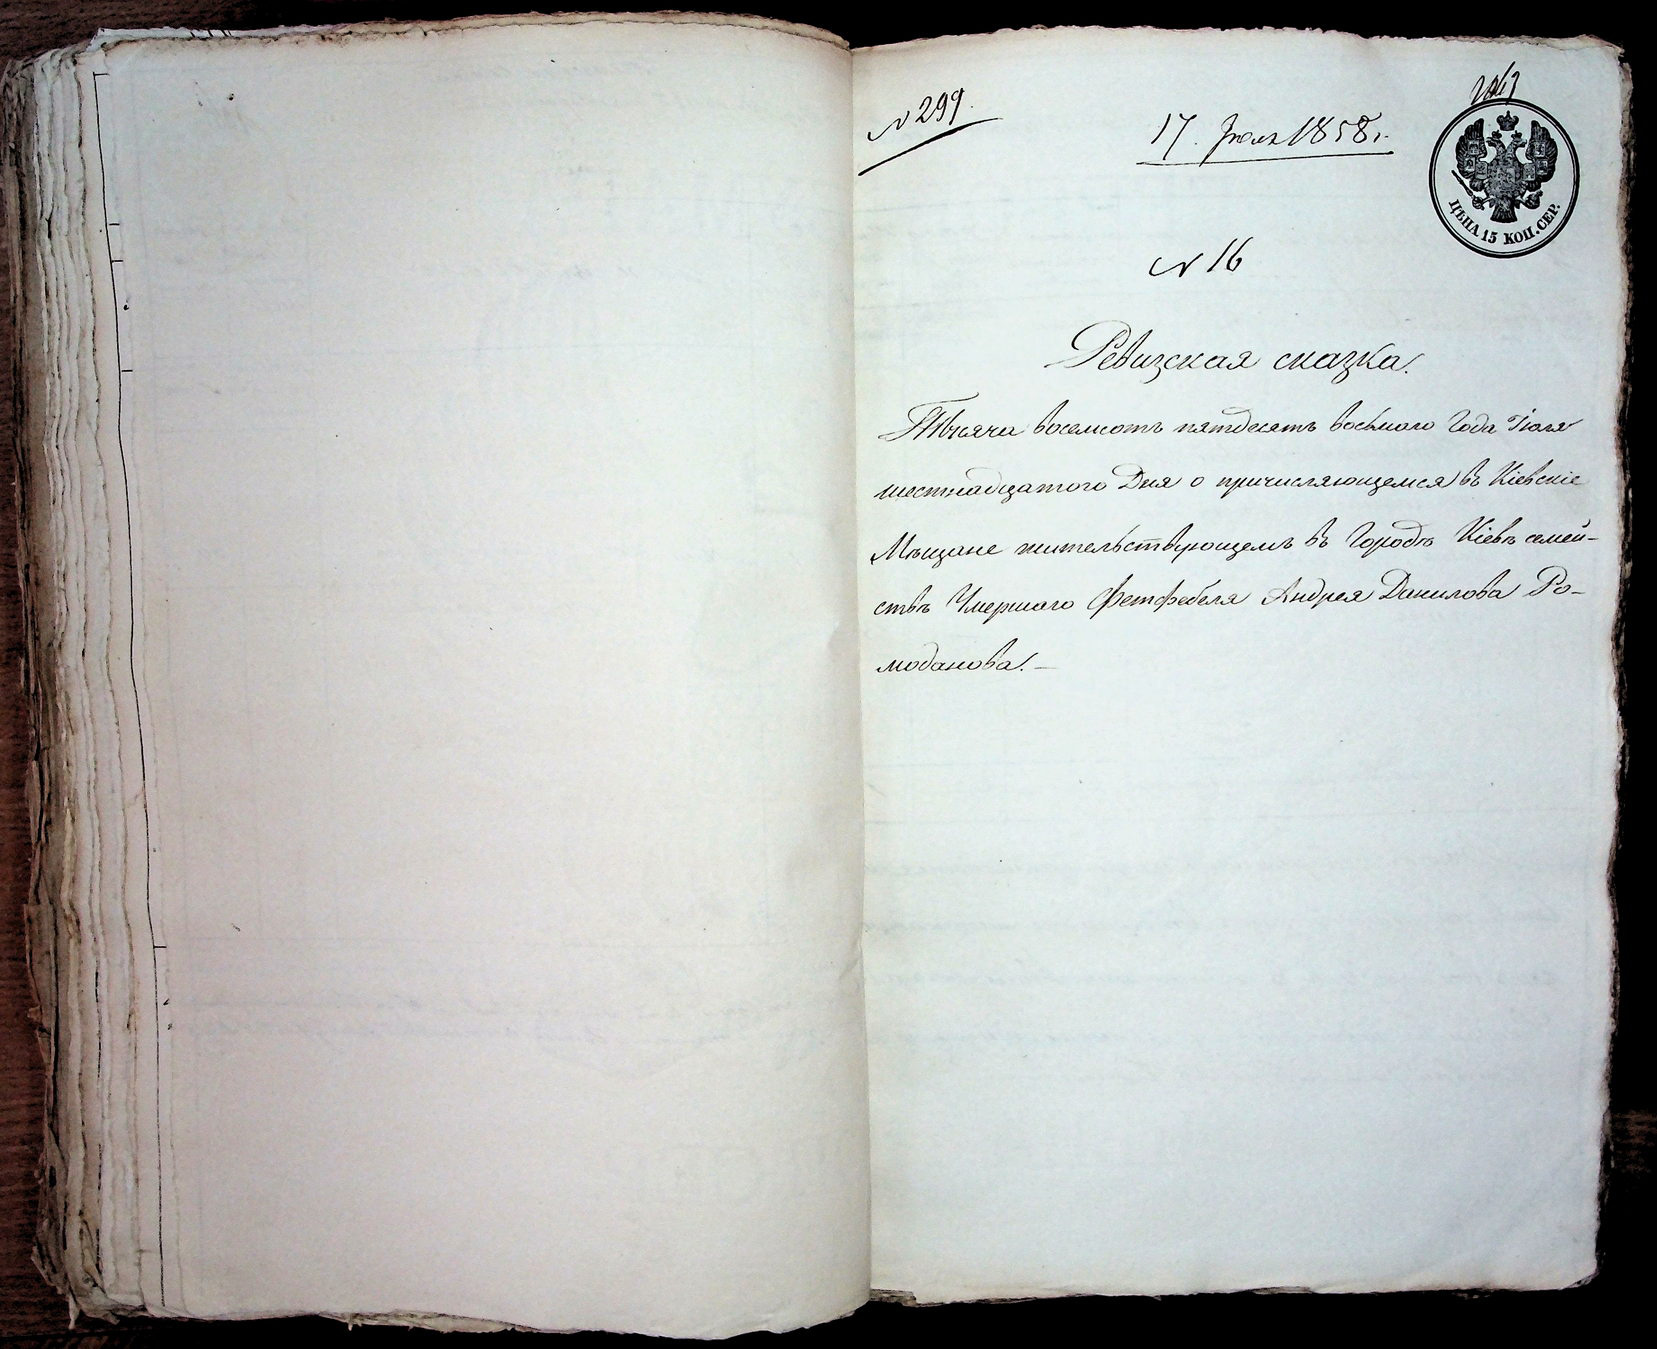 № 299.
17. Июля 1858 г.
ЦѢНА 15 КОП. СЕР.
№ 16
Ревизская сказка.
Тысяча восемсотъ пятдесятъ восьмого Года Іюля
шестнадцатого Дня о причисляющемся въ Кіевскіе
Мѣщане жительствующемъ въ Городѣ Кіевѣ семей-
ствѣ Умершаго Фетфебеля Андрея Данилова Ро-
моданова. —